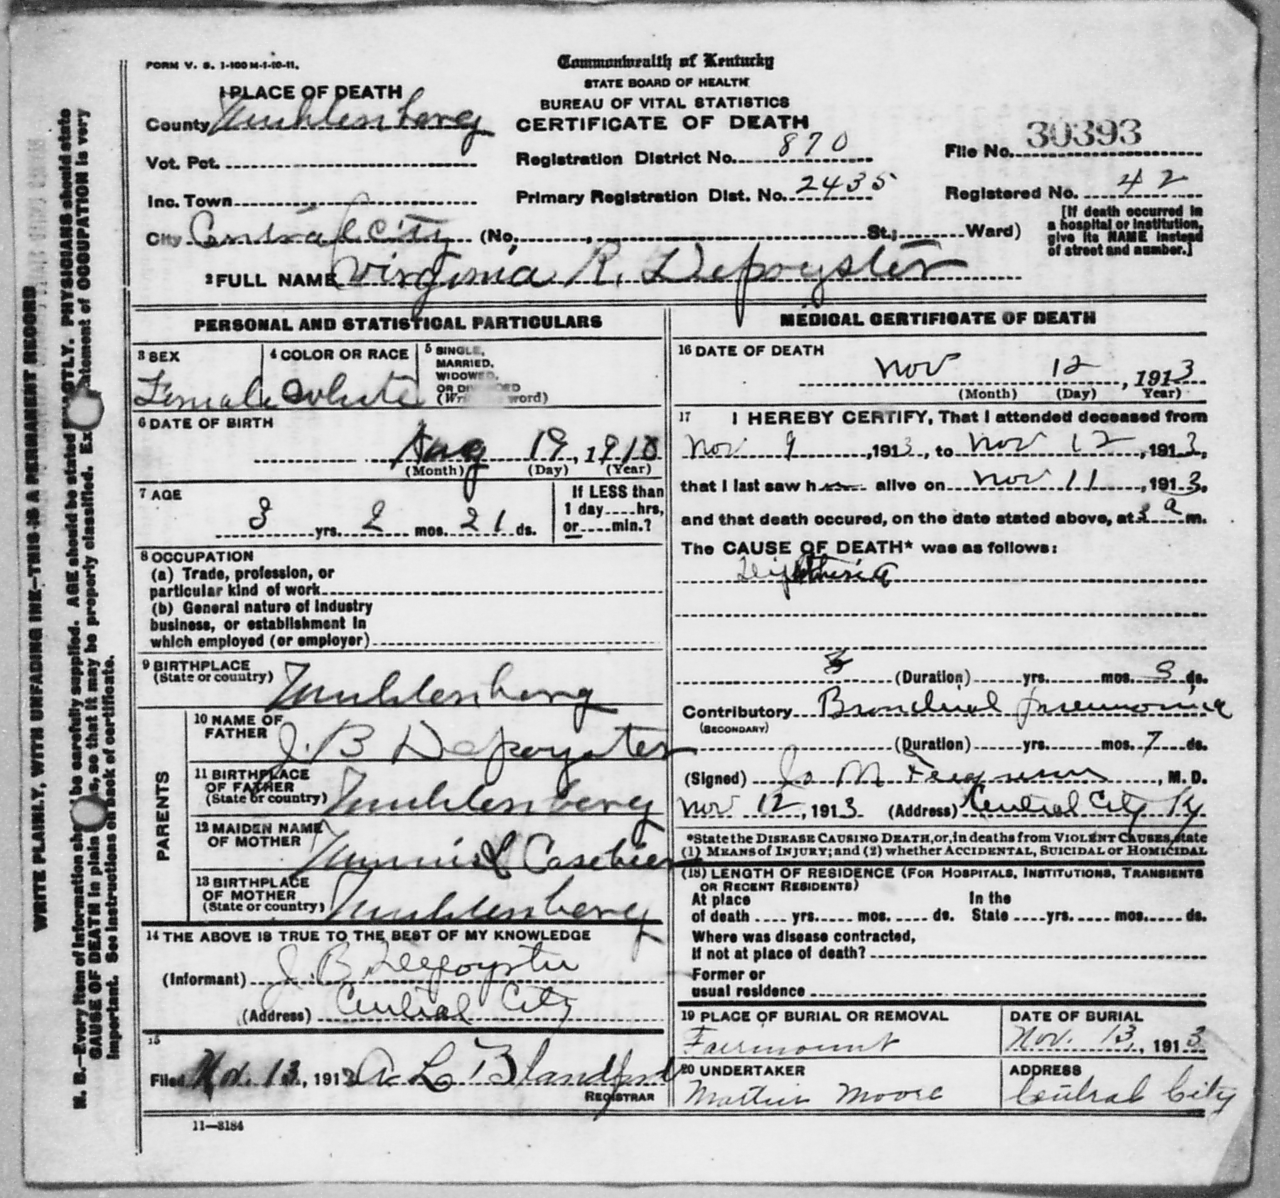 FORM V. S. 1-100 M-1-10-11.
Commonwealth of Kentucky
STATE BOARD OF HEALTH
BUREAU OF VITAL STATISTICS
CERTIFICATE OF DEATH
1 PLACE OF DEATH
County Muhlenberg
Vot. Pct.
Inc. Town
City Central City (No. , St.; Ward)
Registration District No. 870
Primary Registration Dist. No. 2435
File No. 30393
Registered No. 42
[If death occurred in
a hospital or institution,
give its NAME instead
of street and number.]
2 FULL NAME Virginia R. Depoyster
PERSONAL AND STATISTICAL PARTICULARS
3 SEX
Female
4 COLOR OR RACE
White
5 SINGLE,
MARRIED,
WIDOWED,
OR
word)
6 DATE OF BIRTH
Aug 19, 1910
(Month) (Day) (Year)
7 AGE
3 yrs. 2 mos. 21 ds.
If LESS than
1 day hrs,
or min.?
8 OCCUPATION
(a) Trade, profession, or
particular kind of work
(b) General nature of industry
business, or establishment in
which employed (or employer)
9 BIRTHPLACE
(State or country)
Muhlenberg
PARENTS
10 NAME OF
FATHER
J. B Depoyster
11 BIRTHPLACE
OF FATHER
(State or country)
Muhlenberg
12 MAIDEN NAME
OF MOTHER
Casebier
13 BIRTHPLACE
OF MOTHER
(State or country)
Muhlenberg
14 THE ABOVE IS TRUE TO THE BEST OF MY KNOWLEDGE
(Informant) J. B. Depoyster
(Address) Central City
15
Filed Nov. 13, 1913 A L Blandford
REGISTRAR
11—3184
MEDICAL CERTIFICATE OF DEATH
16 DATE OF DEATH
Nov 12, 1913
(Month) (Day) Year)
17 I HEREBY CERTIFY, That I attended deceased from
Nov 9, 1913, to Nov 12, 1913,
that I last saw h alive on Nov 11, 1913,
and that death occured, on the date stated above, at a m.
The CAUSE OF DEATH* was as follows:
Diphtheria
(Duration) yrs. mos. ds.
Contributory Bronchial pneumonia
(SECONDARY)
(Duration) yrs. mos. 7 ds.
(Signed) M Ferguson, M. D.
Nov 12, 1913 (Address) Central City Ky
*State the DISEASE CAUSING DEATH, or, in deaths from VIOLENT CAUSES, state
(1) MEANS of INJURY; and (2) whether ACCIDENTAL, SUICIDAL or HOMICIDAL
(18) LENGTH OF RESIDENCE (FOR HOSPITALS, INSTITUTIONS, TRANSIENTS
OR RECENT RESIDENTS)
At place In the
of death yrs. mos. ds. State yrs. mos. ds.
Where was disease contracted,
If not at place of death?
Former or
usual residence
19 PLACE OF BURIAL OR REMOVAL
Fairmount
DATE OF BURIAL
Nov. 13, 1913
20 UNDERTAKER
Martin Moore
ADDRESS
Central City
WRITE PLAINLY, WITH UNFADING INK—THIS IS A PERMANENT RECORD
N. B.—Every item of information be carefully supplied. AGE should be stated EXACTLY. PHYSICIANS should state
CAUSE OF DEATH in plain so that it may be properly classified. Ex statement of OCCUPATION is very
important. See instructions on back of certificate.